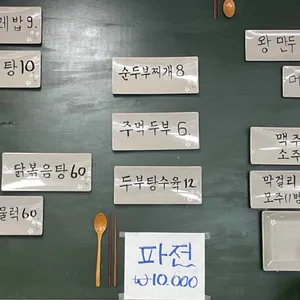 레밥 9.
탕 10
닭볶음탕 60
물럭 60
순두부찌개 8
주먹두부 6
두부탕수육 12
파전
₩10.000
왕만두
맥주
소주
막걸리
모주(1병